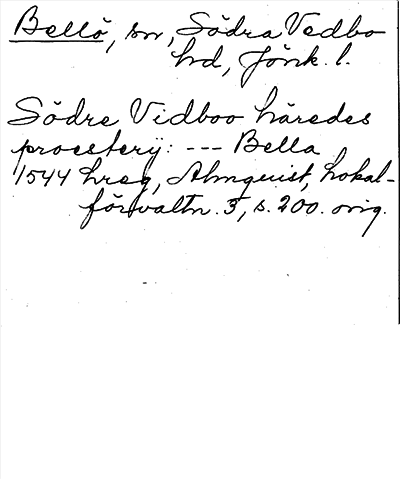 Bellö, sn, Södra Vedbo
hd, Jönk. l.
Södre Vidboo häredes
proesterij: --- Bella
1544 hreg, Almquist, Lokal-
förvaltn. 3, s. 200. orig.